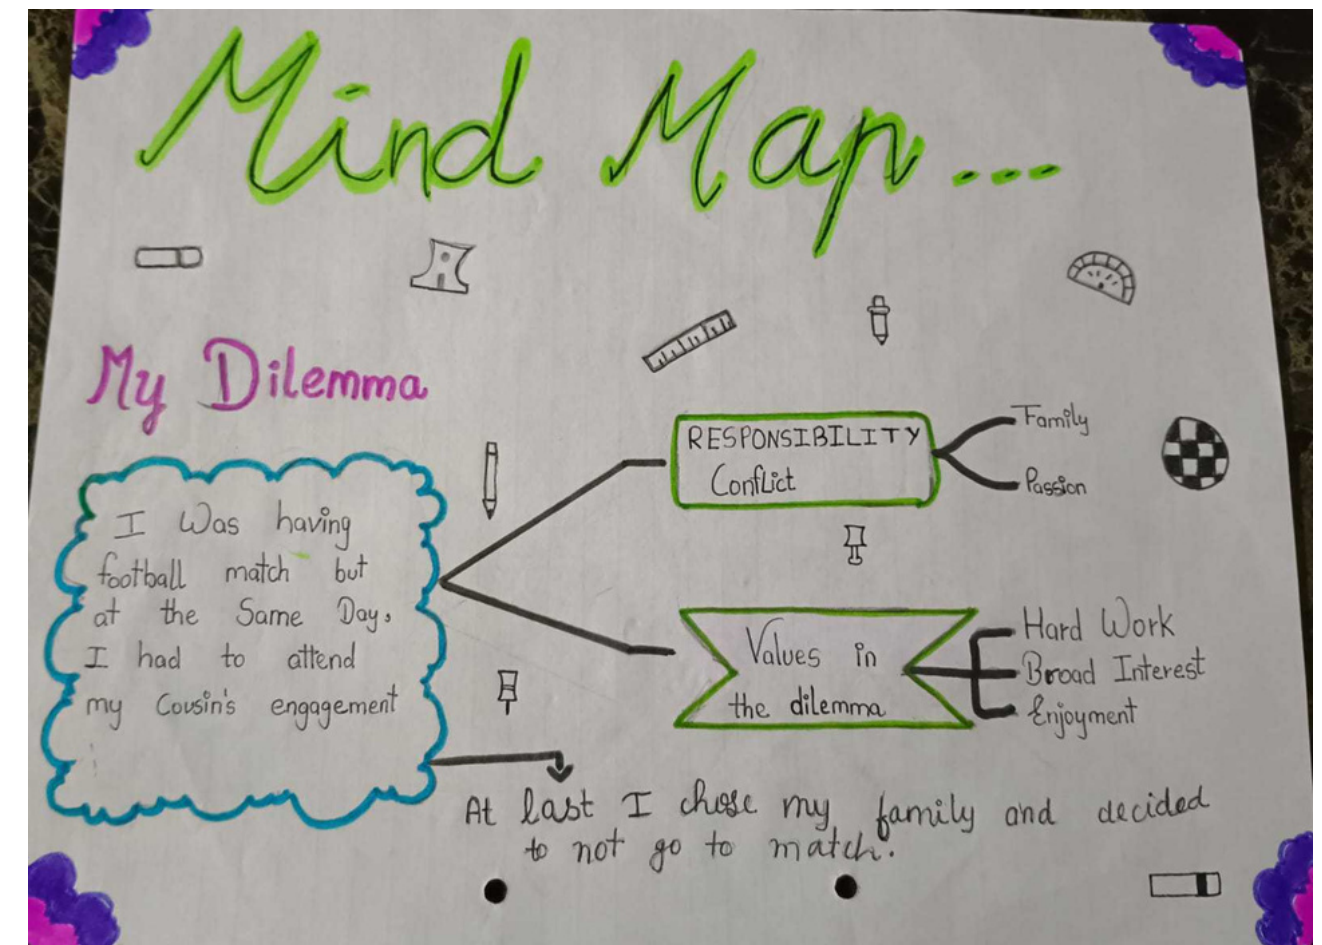 Mind Map...
My Dilemma
I Was having
football match but
at the Same Day,
I had to attend
my Cousin's engagement
RESPONSIBILITY
Conflict
Family
Passion
Values in
the dilemma
Hard Work
Broad Interest
Enjoyment
At last I chose my family and decided
to not go to match.